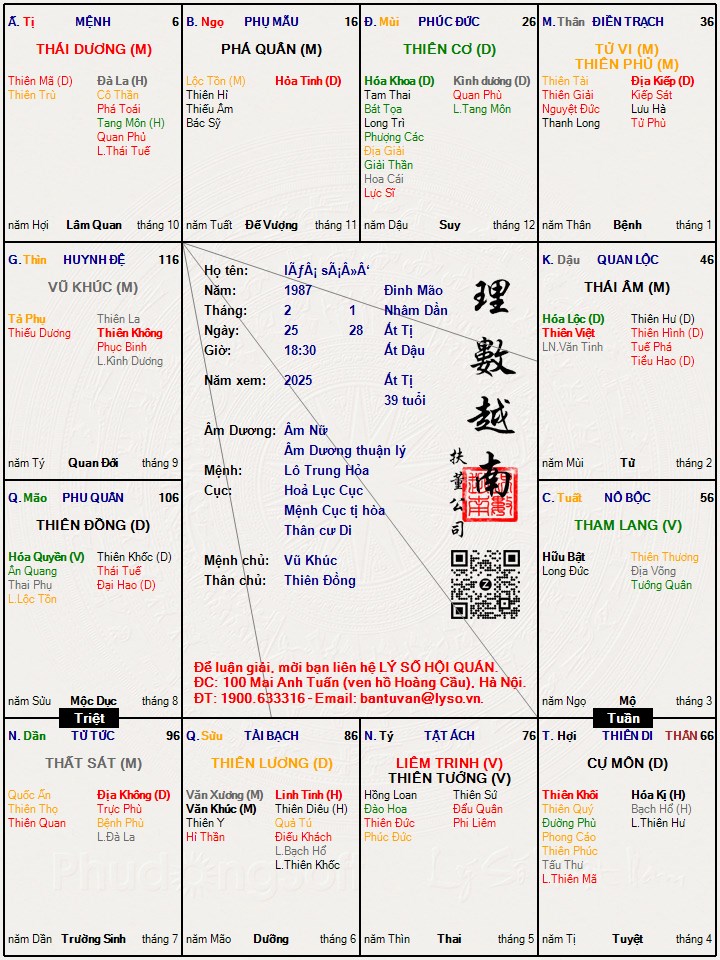 Ấ. Tị MỆNH 6
THÁI DƯƠNG (M)
Thiên Mã (D) Đà La (H)
Thiên Trù Cô Thần
Phá Toái
Tang Môn (H)
Quan Phủ
L.Thái Tuế
năm Hợi Lâm Quan tháng 10
B. Ngọ PHỤ MẪU 16
PHÁ QUÂN (M)
Lộc Tồn (M) Hỏa Tinh (D)
Thiên Hỉ
Thiếu Âm
Bác Sỹ
năm Tuất Đế Vượng tháng 11
Đ. Mùi PHÚC ĐỨC 26
THIÊN CƠ (D)
Hóa Khoa (D) Kình dương (D)
Tam Thai Quan Phù
Bát Tọa L.Tang Môn
Long Trì
Phượng Các
Địa Giải
Giải Thần
Hoa Cái
Lực Sĩ
năm Dậu Suy tháng 12
M. Thân ĐIỀN TRẠCH 36
TỬ VI (M)
THIÊN PHỦ (M)
Thiên Tài Địa Kiếp (D)
Thiên Giải Kiếp Sát
Nguyệt Đức Lưu Hà
Thanh Long Tử Phù
năm Thân Bệnh tháng 1
G. Thìn HUYNH ĐỆ 116
VŨ KHÚC (M)
Tả Phụ Thiên La
Thiếu Dương Thiên Không
Phục Binh
L.Kình Dương
năm Tý Quan Đới tháng 9
Họ tên: lÃƒÂ¡ sÃ¡Â»Â‘
Năm: 1987 Đinh Mão
Tháng: 2 1 Nhâm Dần
Ngày: 25 28 Ất Tị
Giờ: 18:30 Ất Dậu
Năm xem: 2025 Ất Tị
39 tuổi
Âm Dương: Âm Nữ
Âm Dương thuận lý
Mệnh: Lô Trung Hỏa
Cục: Hoả Lục Cục
Mệnh Cục tị hòa
Thân cư Di
Mệnh chủ: Vũ Khúc
Thân chủ: Thiên Đồng
理數越南
扶董公司
Để luận giải, mời bạn liên hệ LÝ SỐ HỘI QUÁN.
ĐC: 100 Mai Anh Tuấn (ven hồ Hoàng Cầu), Hà Nội.
ĐT: 1900.633316 - Email: bantuvan@lyso.vn.
K. Dậu QUAN LỘC 46
THÁI ÂM (M)
Hóa Lộc (D) Thiên Hư (D)
Thiên Việt Thiên Hình (D)
LN.Văn Tinh Tuế Phá
Tiểu Hao (D)
năm Mùi Tử tháng 2
Q. Mão PHU QUÂN 106
THIÊN ĐỒNG (D)
Hóa Quyền (V) Thiên Khốc (D)
Ân Quang Thái Tuế
Thai Phụ Đại Hao (D)
L.Lộc Tồn
năm Sửu Mộc Dục tháng 8
C. Tuất NÔ BỘC 56
THAM LANG (V)
Hữu Bật Thiên Thương
Long Đức Địa Võng
Tướng Quân
năm Ngọ Mộ tháng 3
Triệt
Tuần
N. Dần TỬ TỨC 96
THẤT SÁT (M)
Quốc Ấn Địa Không (D)
Thiên Thọ Trực Phù
Thiên Quan Bệnh Phù
L.Đà La
năm Dần Trường Sinh tháng 7
Q. Sửu TÀI BẠCH 86
THIÊN LƯƠNG (D)
Văn Xương (M) Linh Tinh (H)
Văn Khúc (M) Thiên Diêu (H)
Thiên Y Quả Tú
Hỉ Thần Điếu Khách
L.Bạch Hổ
L.Thiên Khốc
năm Mão Dưỡng tháng 6
N. Tý TẬT ÁCH 76
LIÊM TRINH (V)
THIÊN TƯỚNG (V)
Hồng Loan Thiên Sứ
Đào Hoa Đẩu Quân
Thiên Đức Phi Liêm
Phúc Đức
năm Thìn Thai tháng 5
T. Hợi THIÊN DI THÂN 66
CỰ MÔN (D)
Thiên Khôi Hóa Kị (H)
Thiên Quý Bạch Hổ (H)
Đường Phù L.Thiên Hư
Phong Cáo
Thiên Phúc
Tấu Thư
L.Thiên Mã
năm Tị Tuyệt tháng 4